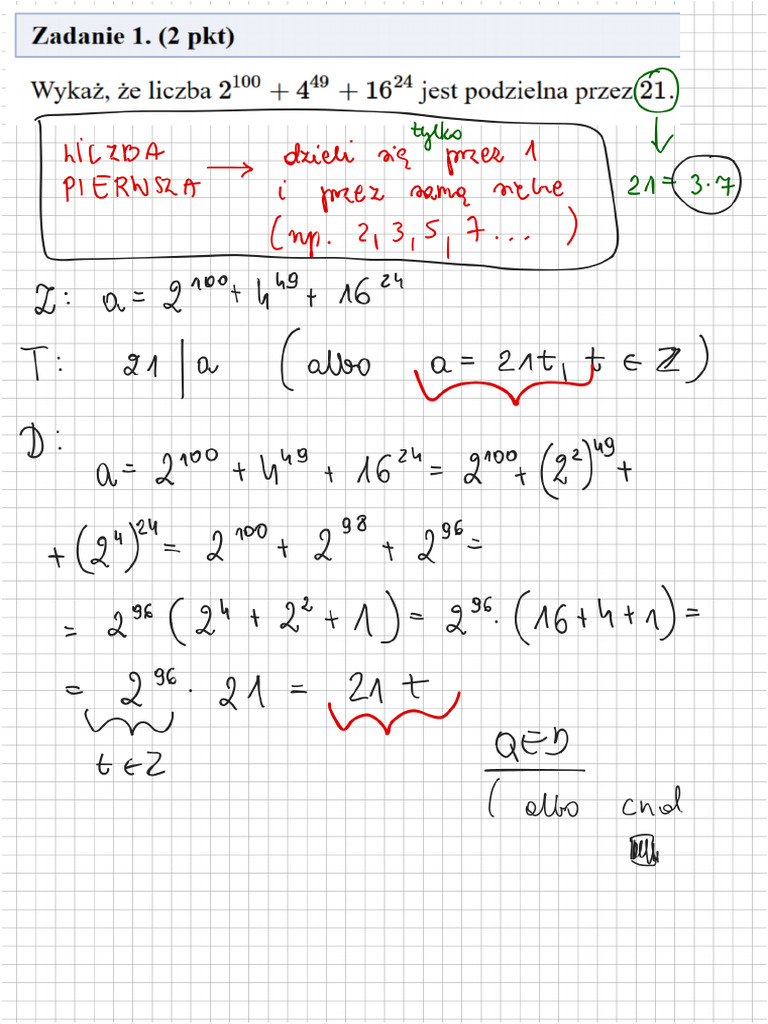 Zadanie 1. (2 pkt)
Wykaż, że liczba 2^100 + 4^49 + 16^24 jest podzielna przez 21.
LICZBA PIERWSZA → dzieli się tylko przez 1
i przez samą siebie
(np. 2, 3, 5, 7 ... )
21 = 3·7
Z: a = 2^100 + 4^49 + 16^24
T: 21 | a (albo a = 21t, t ∈ Z)
D:
a = 2^100 + 4^49 + 16^24 = 2^100 + (2^2)^49 +
+ (2^4)^24 = 2^100 + 2^98 + 2^96 =
= 2^96 (2^4 + 2^2 + 1) = 2^96 · (16 + 4 + 1) =
= 2^96 · 21 = 21 t
t ∈ Z
QED
( albo cnd